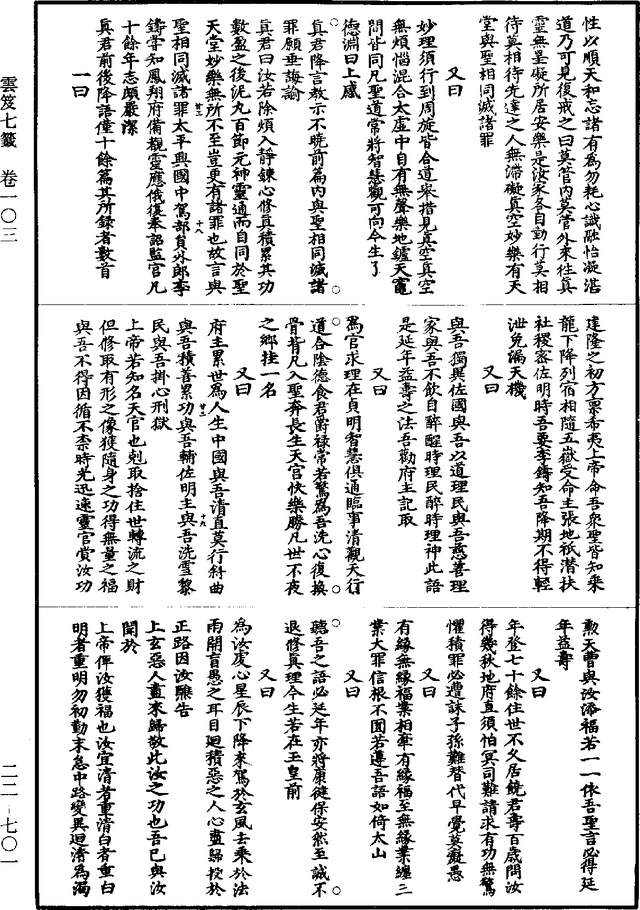 性以順天和忘諸有為勿耗心識融怡凝湛
道乃可見復戒之曰莫管內莫管外來往真
靈無罣礙所居安樂是汝家各自動行莫相
待莫相待先達之人無滯礙真空妙樂有天
堂與聖相同滅諸罪
又曰
妙理須行到周旋皆合道舉措見真空真空
無煩惱混合太虛中自有無聲樂地鑪天竈
問皆同凡聖道常將智慧觀可向今生了
德淵曰上感
真君降言教示不曉前篇內與聖相同滅諸
罪願垂誨諭
真君曰汝若除煩入靜鍊心修真積累其功
數盈之後泥丸百節元神靈通而自同於聖
天堂妙樂無所不至豈更有諸罪也故言與
聖相同滅諸罪太平興國中駕部員外郎李
鑄嘗知鳳翔府備覩靈應俄復奉詔監官凡
十餘年志願嚴潔
真君前後降語僅十餘篇其所錄者數首
一曰
建隆之初方稟希夷上帝命吾眾聖皆知乘
龍下降列宿相隨五嶽受命主張地祇潛扶
社稷密佐明時吾要李鑄知吾降期不得輕
泄免漏天機
又曰
與吾獨與佐國與吾以道理民與吾慈善理
家與吾不飲自醉醒時理民醉時理神此語
是延年益壽之法吾勸府主記取
又曰
為官求理在貞明智慧俱通臨事清觀天行
道合陰德食君爵祿常若驚為吾洗心復換
骨背凡入聖奔長生天宮快樂勝凡世不夜
之鄉挂一名
又曰
府主累世為人生中國與吾清直莫行斜曲
與吾積善累功與吾輔佐明主與吾洗雪黎
民與吾掛心刑獄
上帝若知名天官也剋取捨住世轉流之財
但修取有形之像獲隨身之功得無量之福
與吾不得因循不柰時光迅速靈官賞汝功
勲天曹與汝添福若一一依吾聖言必得延
年益壽
又曰
年登七十餘住世不久居饒君壽百歲問汝
得幾秋地府直須怕冥司難請求有功無驚
懼積罪必遭誅子孫難替代早覺莫癡愚
又曰
有緣無緣福業相牽有緣福至無緣業纏三
業大罪信根不圓若遵吾語如倚太山
又曰
聽吾之語必延年亦將康健保安然至誠不
退修真理今生若在玉皇前
又曰
為汝虔心星辰下降來駕於玄風去乘於法
雨開盲愚之耳目迴積惡之人心盡歸投於
正路因汝陳告
上玄惡人盡來歸敬此汝之功也吾已與汝
聞於
上帝俾汝獲福也汝宜清者重清白者重白
明者重明勿初勤末怠中路變異迴清為濁
雲笈七籤 卷一〇三
二二-七〇一